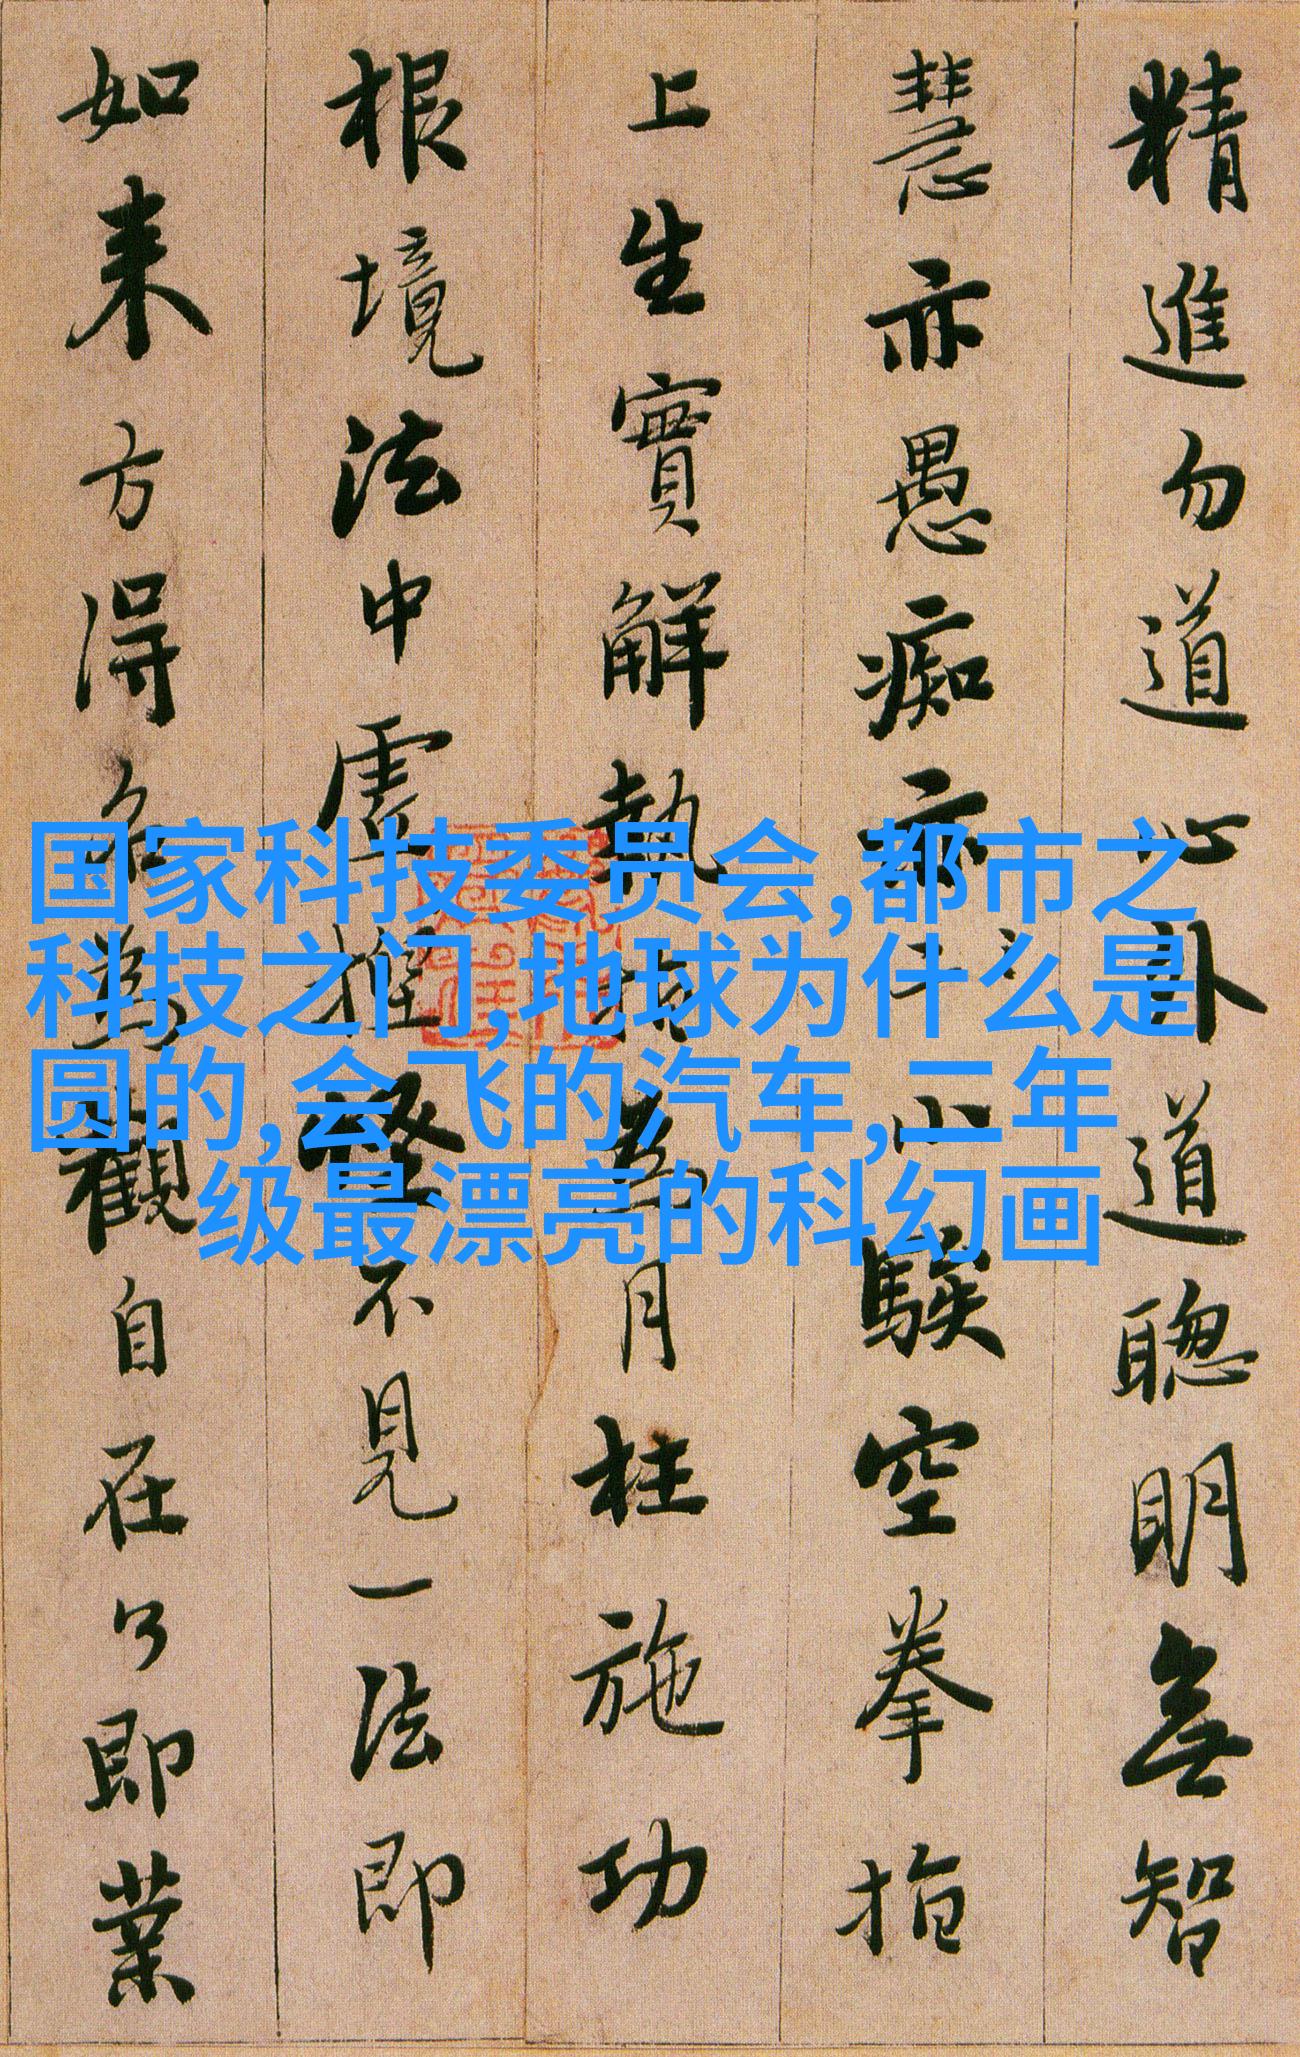 精進勿道心外道聰明無智
慧亦愚痴亦小騃空拳指
上生實解執指為月枉施功
根境法中虛捏怪不見一法即
如来方得名為觀自在了即業
国家科技委员会,都市之
科技之门,地球为什么是
圆的,会飞的汽车,二年
级最漂亮的科幻画